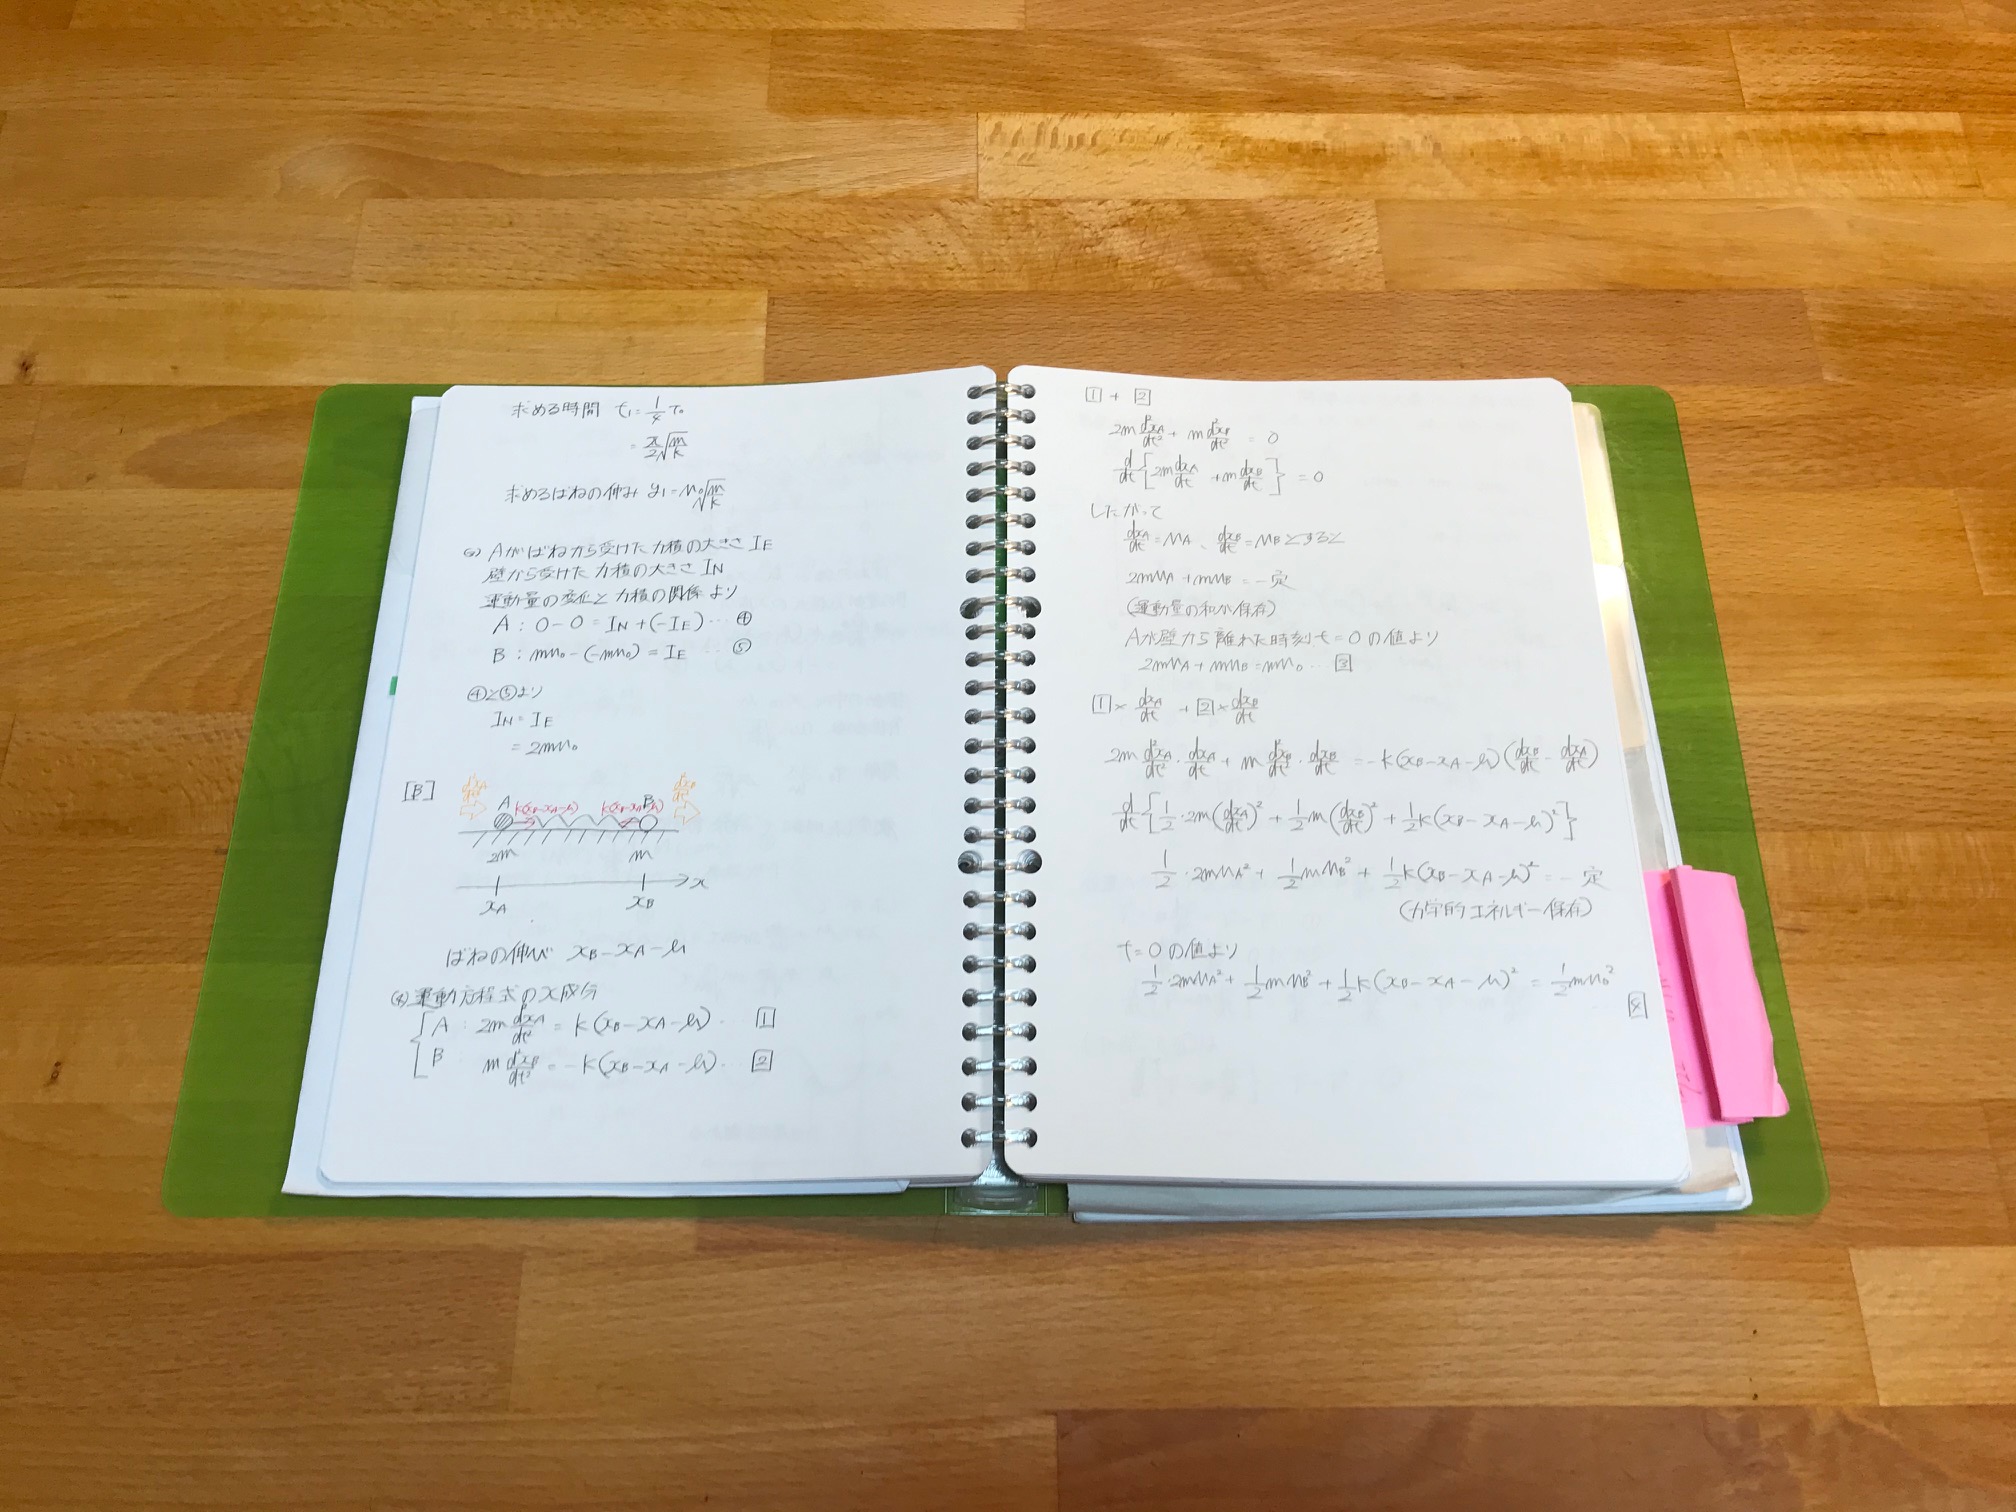 求める時間 t₁ = 1/4 T₀
= π/2 √(m/k)
求めるばねの伸び y₁ = u₀√(m/k)
Aがばねから受けた力積の大きさ IE
壁から受けた力積の大きさ IN
運動量の変化と力積の関係より
A : 0 - 0 = IN + (-IE) … ④
B : mu₀ - (-mu₀) = IE … ⑤
④と⑤より
IN = IE
= 2mu₀
[B]
A B
k(xB-xA-l) k(xB-xA-l)
2m m
x
xA xB
ばねの伸び xB - xA - l
運動方程式のx成分
A : 2m d²xA/dt² = k(xB - xA - l) … 1
B : m d²xB/dt² = -k(xB - xA - l) … 2
1 + 2
2m d²xA/dt² + m d²xB/dt² = 0
d/dt{2m dxA/dt + m dxB/dt} = 0
したがって
dxA/dt = uA、dxB/dt = uBとすると
2muA + muB = 一定
(運動量の和が保存)
Aが壁から離れた時刻 t = 0 の値より
2muA + muB = mu₀ … 3
1 × dxA/dt + 2 × dxB/dt
2m d²xA/dt² · dxA/dt + m d²xB/dt² · dxB/dt = -k(xB - xA - l)(dxB/dt - dxA/dt)
d/dt{1/2 · 2m(dxA/dt)² + 1/2 m(dxB/dt)² + 1/2 k(xB - xA - l)²}
1/2 · 2muA² + 1/2 muB² + 1/2 k(xB - xA - l)² = 一定
(力学的エネルギー保存)
t = 0 の値より
1/2 · 2muA² + 1/2 muB² + 1/2 k(xB - xA - l)² = 1/2 mu₀²
… 4